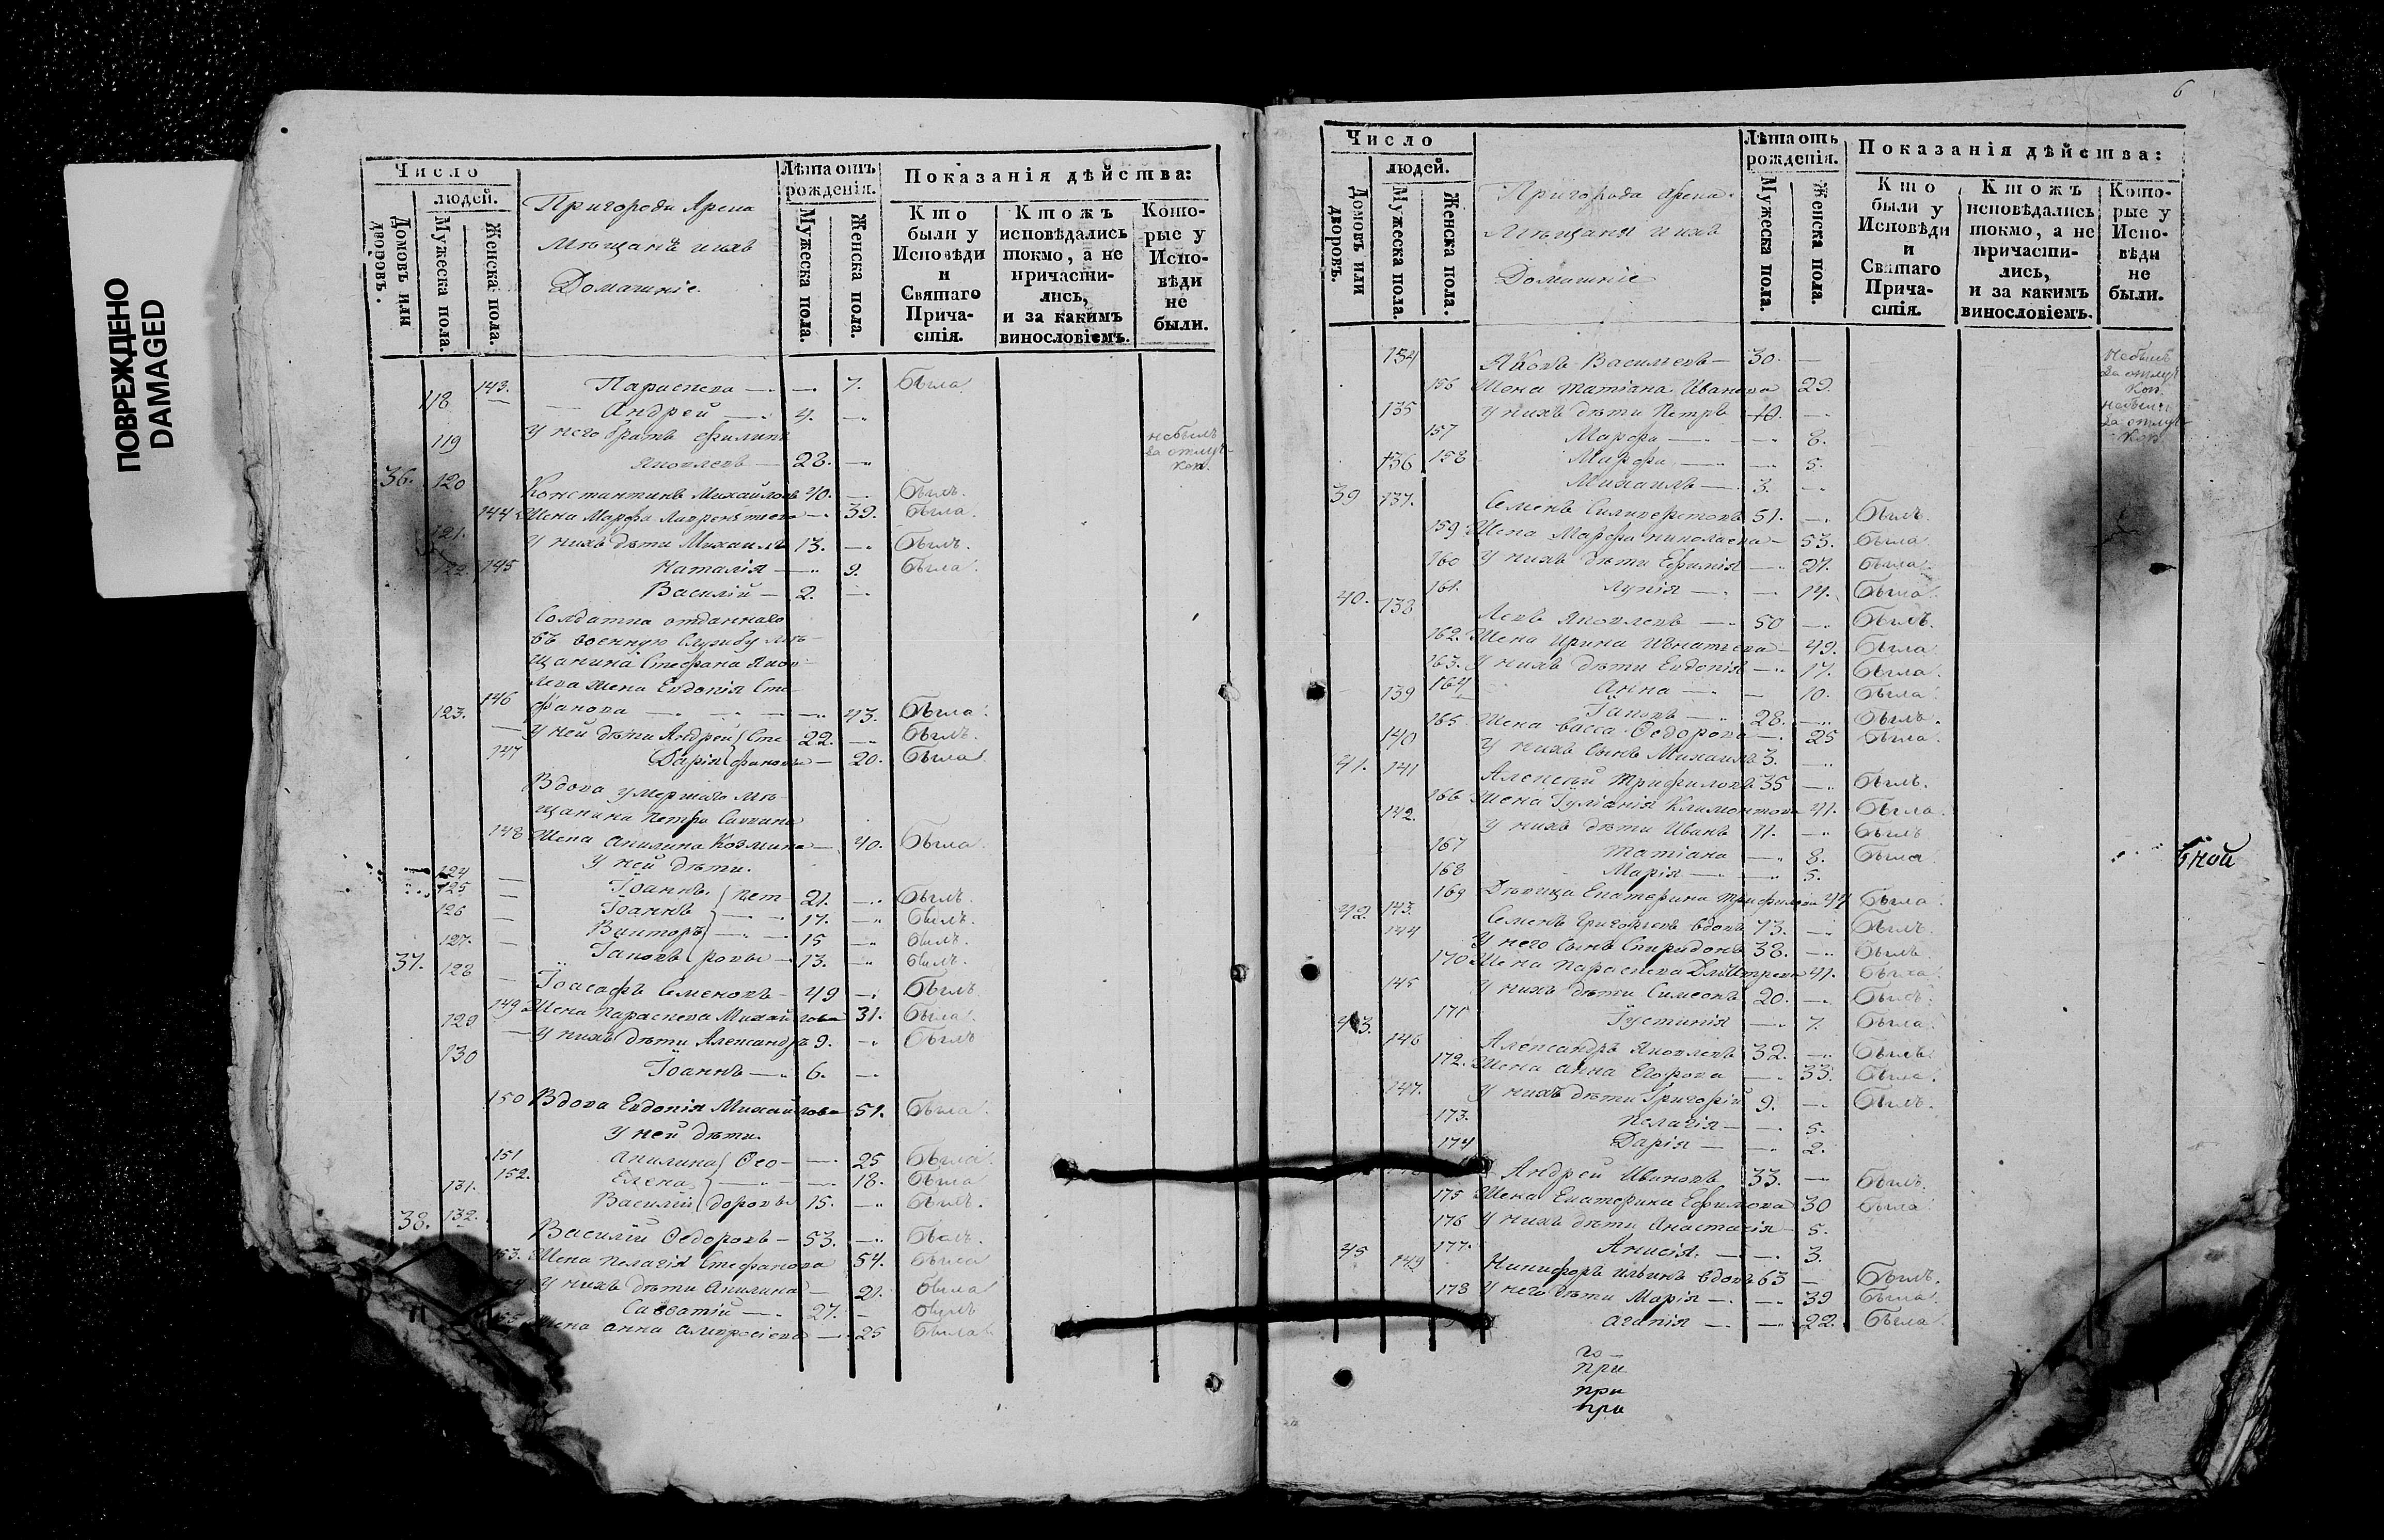 ПОВРЕЖДЕНО
DAMAGED
Число
людей.
Домовъ или дворовъ.
Мужеска пола.
Женска пола.
Пригорода Арска
Мѣщанѣ ихъ
Домашніе.
Лѣта отъ рожденія.
Мужеска пола.
Женска пола.
Показанія дѣйства:
Кто были у Исповѣди и Святаго Прича-стія.
Ктожъ исповѣдались токмо, а не причасти-лись, и за какимъ винословіемъ.
Кото-рые у Испо-вѣди не были.
143. Параскева — — 7. была
118 Андрей — 4. —
119 У него братъ Филипъ
Яковлевъ — 28. — небылъ за отлуч-кой.
36. 120 Константинъ Михайловъ 40. — былъ.
144 Жена Марфа Лаврентьева — 39. была.
121. У нихъ дѣти Михаилъ 13. — былъ.
145 Наталія — 9. была.
122 Василій — 2. —
Солдатка отданнаго
въ военную службу мѣ-
щанина Стефана Яков-
лева жена Евдокія Сте-
146 фанова — — 43. была.
123. У ней дѣти Андрей Сте- 22. — былъ.
147 Дарія фановы — 20. была
Вдова умершаго мѣ-
щанина Петра Саввина
148 Жена Акилина Козмина — 40. была.
У ней дѣти.
124 Іоаннъ Пет- 21. — былъ.
125 Іоаннъ — 17. — былъ.
126 Викторъ — 15 — былъ.
127. Іаковъ ровы — 13. — былъ.
37. 128 Іоасафъ Семеновъ — 49 — былъ
149 Жена Параскева Михайлова 31. была.
129 У нихъ дѣти Александръ 9. — былъ
130 Іоаннъ — 6. —
150 Вдова Евдокія Михайлова 51. была.
У ней дѣти.
151 Акилина Ѳео- — 25 была.
152. Елена — — 18. была
131. Василій доровы 15. — былъ.
38. 132. Василій Ѳедоровъ — 53. — былъ.
153. Жена Пелагія Стефанова 54. была
У нихъ дѣти Акилина — 21. была
Савватій — 27. — былъ
Жена Анна Амвросіева — 25 была
6
Число
людей.
Домовъ или дворовъ.
Мужеска пола.
Женска пола.
Пригорода Арска
Мѣщанѣ ихъ
Домашніе
Лѣта отъ рожденія.
Мужеска пола.
Женска пола.
Показанія дѣйства:
Кто были у Исповѣди и Святаго Прича-стія.
Ктожъ исповѣдались токмо, а не причасти-лись, и за какимъ винословіемъ.
Кото-рые у Испо-вѣди не были.
134 Яковъ Васильевъ — 30. — небылъ за отлуч-кой.
156 Жена Татіана Иванова 29. небыла за отлуч-кой
135 У нихъ дѣти Петръ 10. —
157 Марфа — — 8.
158 Марфа — — 5.
136 Михаилъ — 3. —
39 137. Семенъ Силиверстовъ 51. — былъ.
159 Жена Марфа Николаева — 53. была.
160 У нихъ дѣти Евфимія — 27. была
161. Лукія — — 14. была.
40. 138 Левъ Яковлевъ — 50 — былъ.
162. Жена Ирина Игнатьева — 49. была
163. У нихъ дѣти Евдокія — 17. была.
164 Анна — — 10. была.
139 Іаковъ — 28. — былъ.
165 Жена Васса Ѳедорова — 25 была.
140 У нихъ сынъ Михаилъ 3. —
41. 141 Алексѣй Трифиловъ 35 — былъ.
166 Жена Іуліанія Климонтова 41. была.
142. У нихъ дѣти Иванъ 11. — былъ
167 Татіана — 8. была
168 Марія — — 5.
169 Дѣвица Екатерина Трифилова 44 была
42. 143. Семенъ Григорьевъ вдовъ 73. — былъ.
144 У него сынъ Спиридонъ 38. — былъ.
170 Жена Параскева Дмитрева 41. была.
145 У нихъ дѣти Симеонъ 20. — былъ.
171 Іустинія — 7. была.
43. 146 Александръ Яковлевъ 32. — былъ.
172. Жена Анна Егорова — 33. была.
147. У нихъ дѣти Григорій 9. — былъ.
173. Пелагія — — 5.
174 Дарія — — 2.
Андрей Ивановъ 33. — былъ.
175 Жена Екатерина Ефимова 30 была
176 У нихъ дѣти Анастасія 5.
177. Анисія. — — 3.
45 149 Никифоръ Ильинъ вдовъ 63 — былъ.
178 У него дѣти Марія — — 39 была.
Агапія — — 22. была.
го —
при
при
при
бной